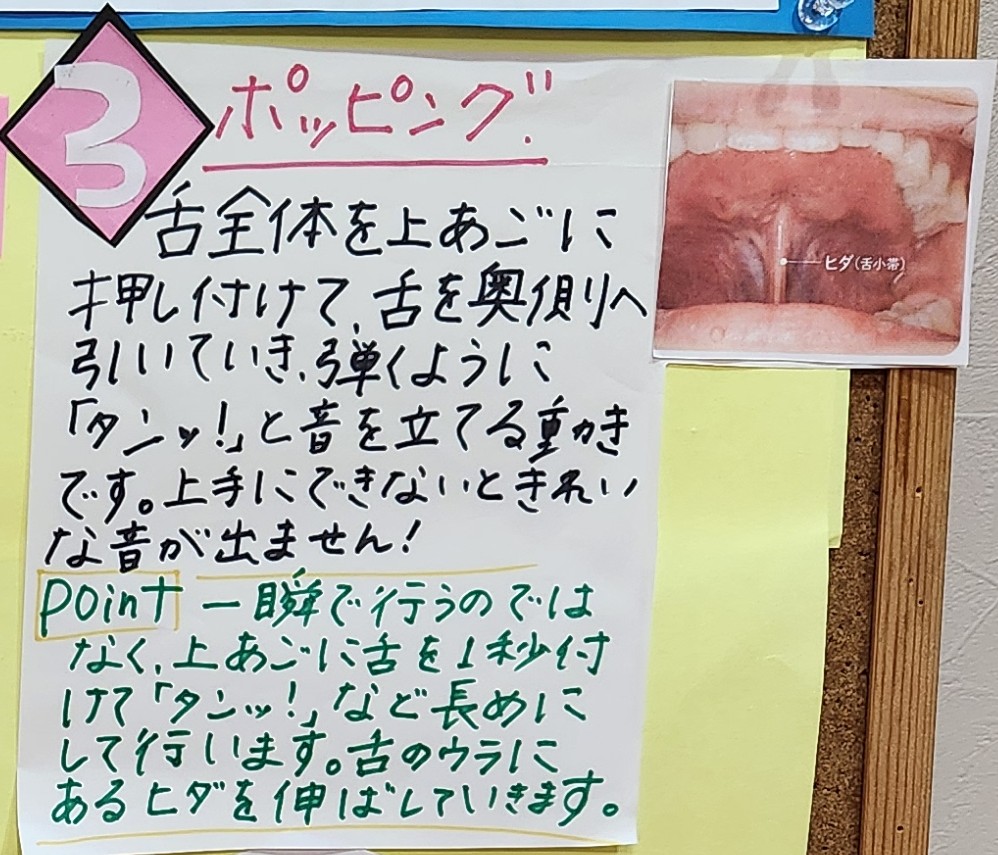 3
ポッピング.
舌全体を上あごに
押し付けて、舌を奥側へ
引いていき、弾くように
「タンッ!」と音を立てる動き
です。上手にできないときれい
な音が出ません!
Point 一瞬で行うのでは
なく、上あごに舌を1秒付
けて「タンッ!」など長めに
して行います。舌のウラに
あるヒダを伸ばしていきます。
ヒダ(舌小帯)